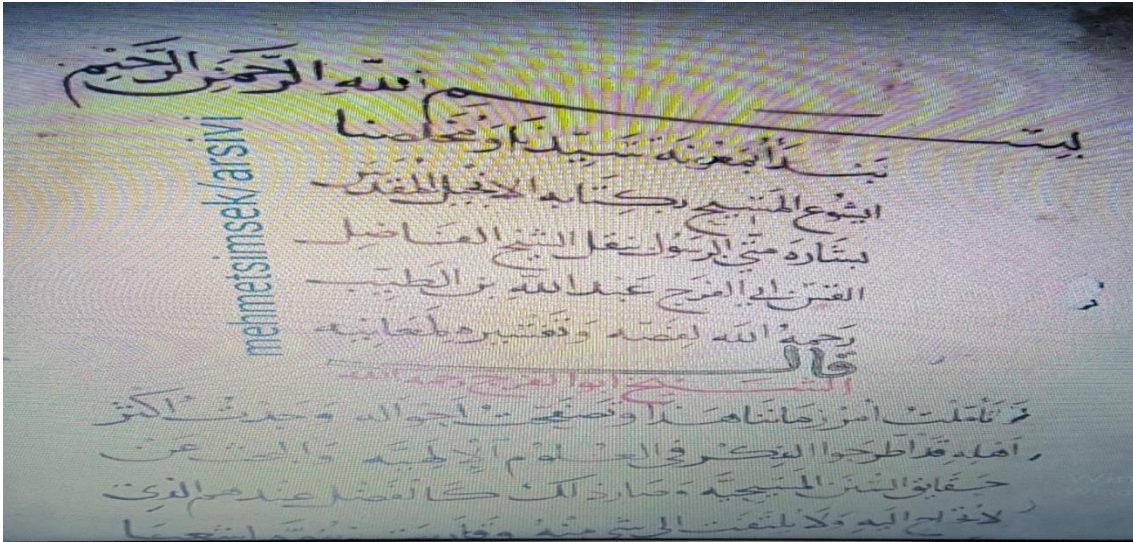 بسم الله الرحمن الرحيم
نبتدأ بمعونة سيدنا ومخلصنا
ايشوع المسيح بكتابه الانجيل المقدس
بشارة متي الرسول نقل الشيخ الفاضل
القس ابي الفرج عبد الله بن الطيب
رحمه الله لفصه وتفسيره لمعانيه
قال
الشيخ ابوا الفرج رحمه الله
تاملت امر زماننا هذا وتصفحت احواله وجدت اكثر
اهله قد اطرحوا الفكر في العلوم الالهيه والبحث عن
حقايق السنن المسيحيه وصار ذلك كالفضل عندهم الذي
لا يحتاج اليه ولا يلتفت الى شي منه
mehmetsimsek/arsivi